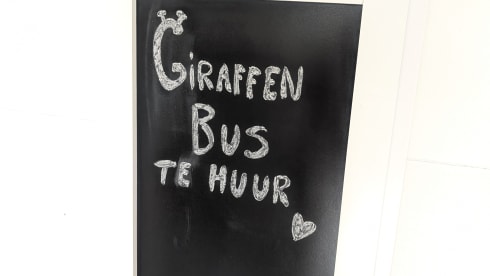 GiRAFFEN
BUS
TE HUUR